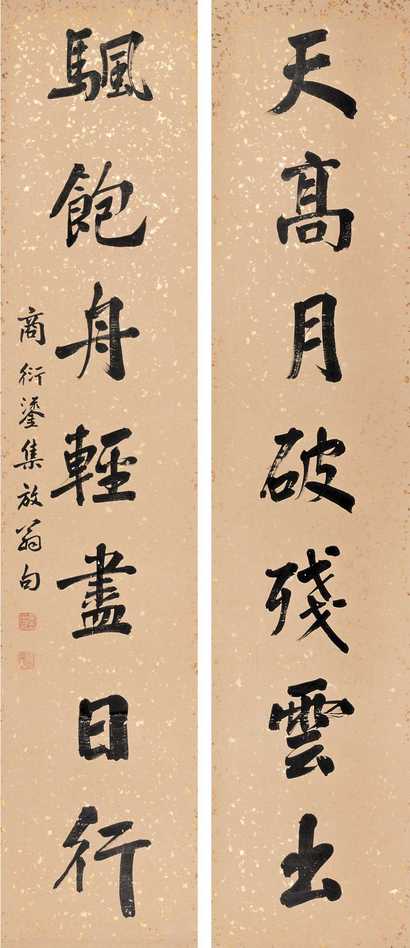 天高月破殘雲出
颿飽身輕盡日行
商衍鎏集放翁句